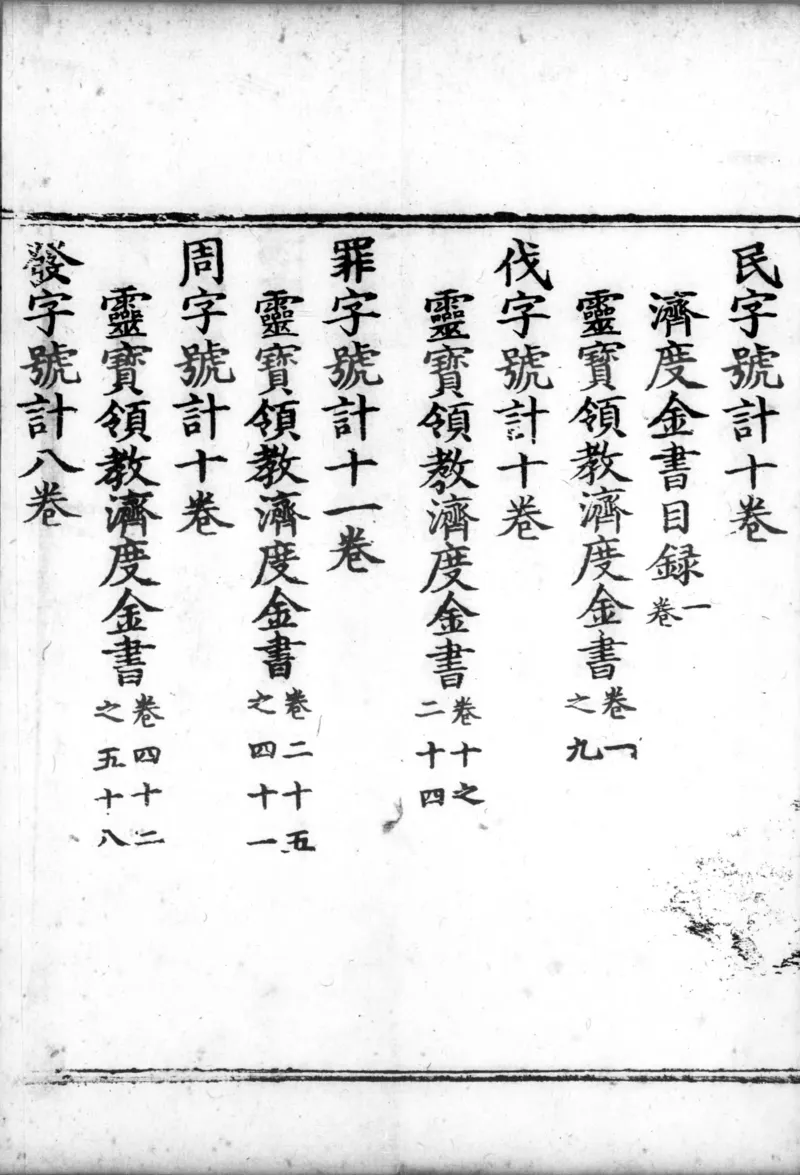 民字號計十卷
濟度金書目録一卷
靈寶領教濟度金書卷一之九
伐字號計十卷
靈寶領教濟度金書卷十之二十四
罪字號計十一卷
靈寶領教濟度金書卷二十五之四十一
周字號計十卷
靈寶領教濟度金書卷四十二之五十八
發字號計八卷